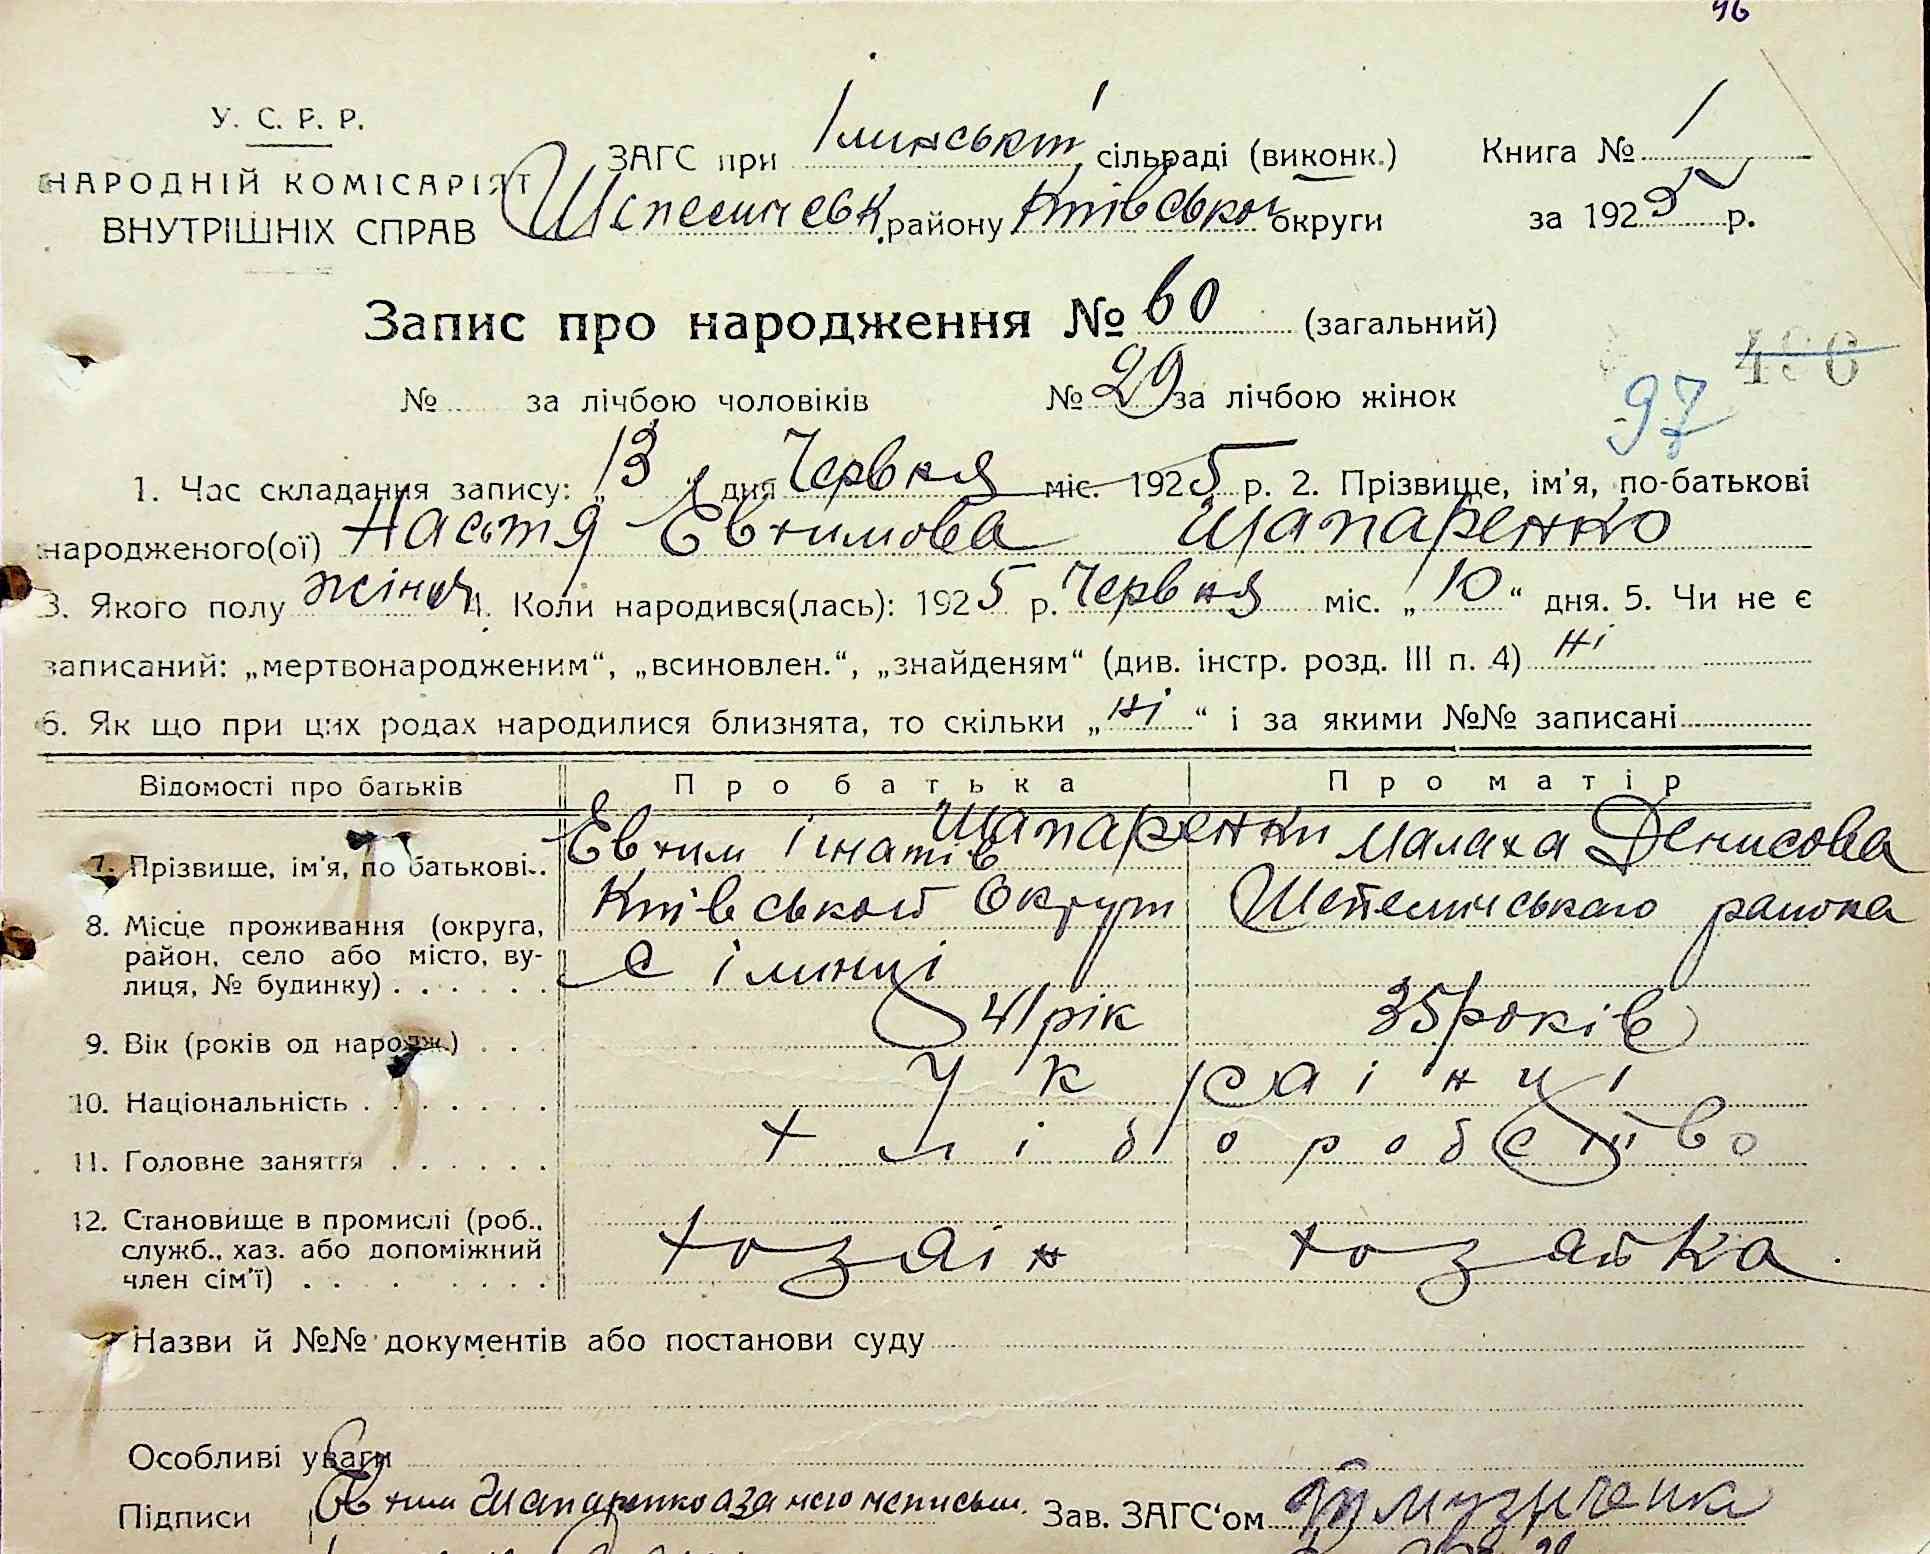 96
У. С. Р. Р.
НАРОДНІЙ КОМІСАРІЯТ
ВНУТРІШНІХ СПРАВ
ЗАГС при Ілинській сільраді (виконк.)
Шпелическ. району Київської округи
Книга № 1
за 1925 р.
Запис про народження № 60 (загальний)
№ за лічбою чоловіків № 29 за лічбою жінок
496
97
1. Час складання запису: „13“ дня Червня міс. 1925 р. 2. Прізвище, ім'я, по-батькові
народженого(ої) Настя Евхимова Шапаренко
3. Якого полу жіноч 4. Коли народився(лась): 1925 р. Червня міс. „10“ дня. 5. Чи не є
записаний: „мертвонародженим“, „всиновлен.“, „знайденям“ (див. інстр. розд. III п. 4) ні
6. Як що при цих родах народилися близнята, то скільки „ні“ і за якими №№ записані
Відомості про батьків Про батька Про матір
7. Прізвище, ім'я, по батькові Евхим Ігнатів Шапаренки Малаха Денисова
8. Місце проживання (округа, Київськой Округи Шепелическаго района
район, село або місто, ву- с ілинці
лиця, № будинку)
9. Вік (років од народж.) 41 рік 35 років
10. Національність Украінці
11. Головне заняття хліборобство
12. Становище в промислі (роб.,
служб., хаз. або допоміжний хозяін хозяйка
член сім'ї)
Назви й №№ документів або постанови суду
Особливі уваги
Підписи Евхим Шапаренко а за него неписьм. Зав. ЗАГС'ом